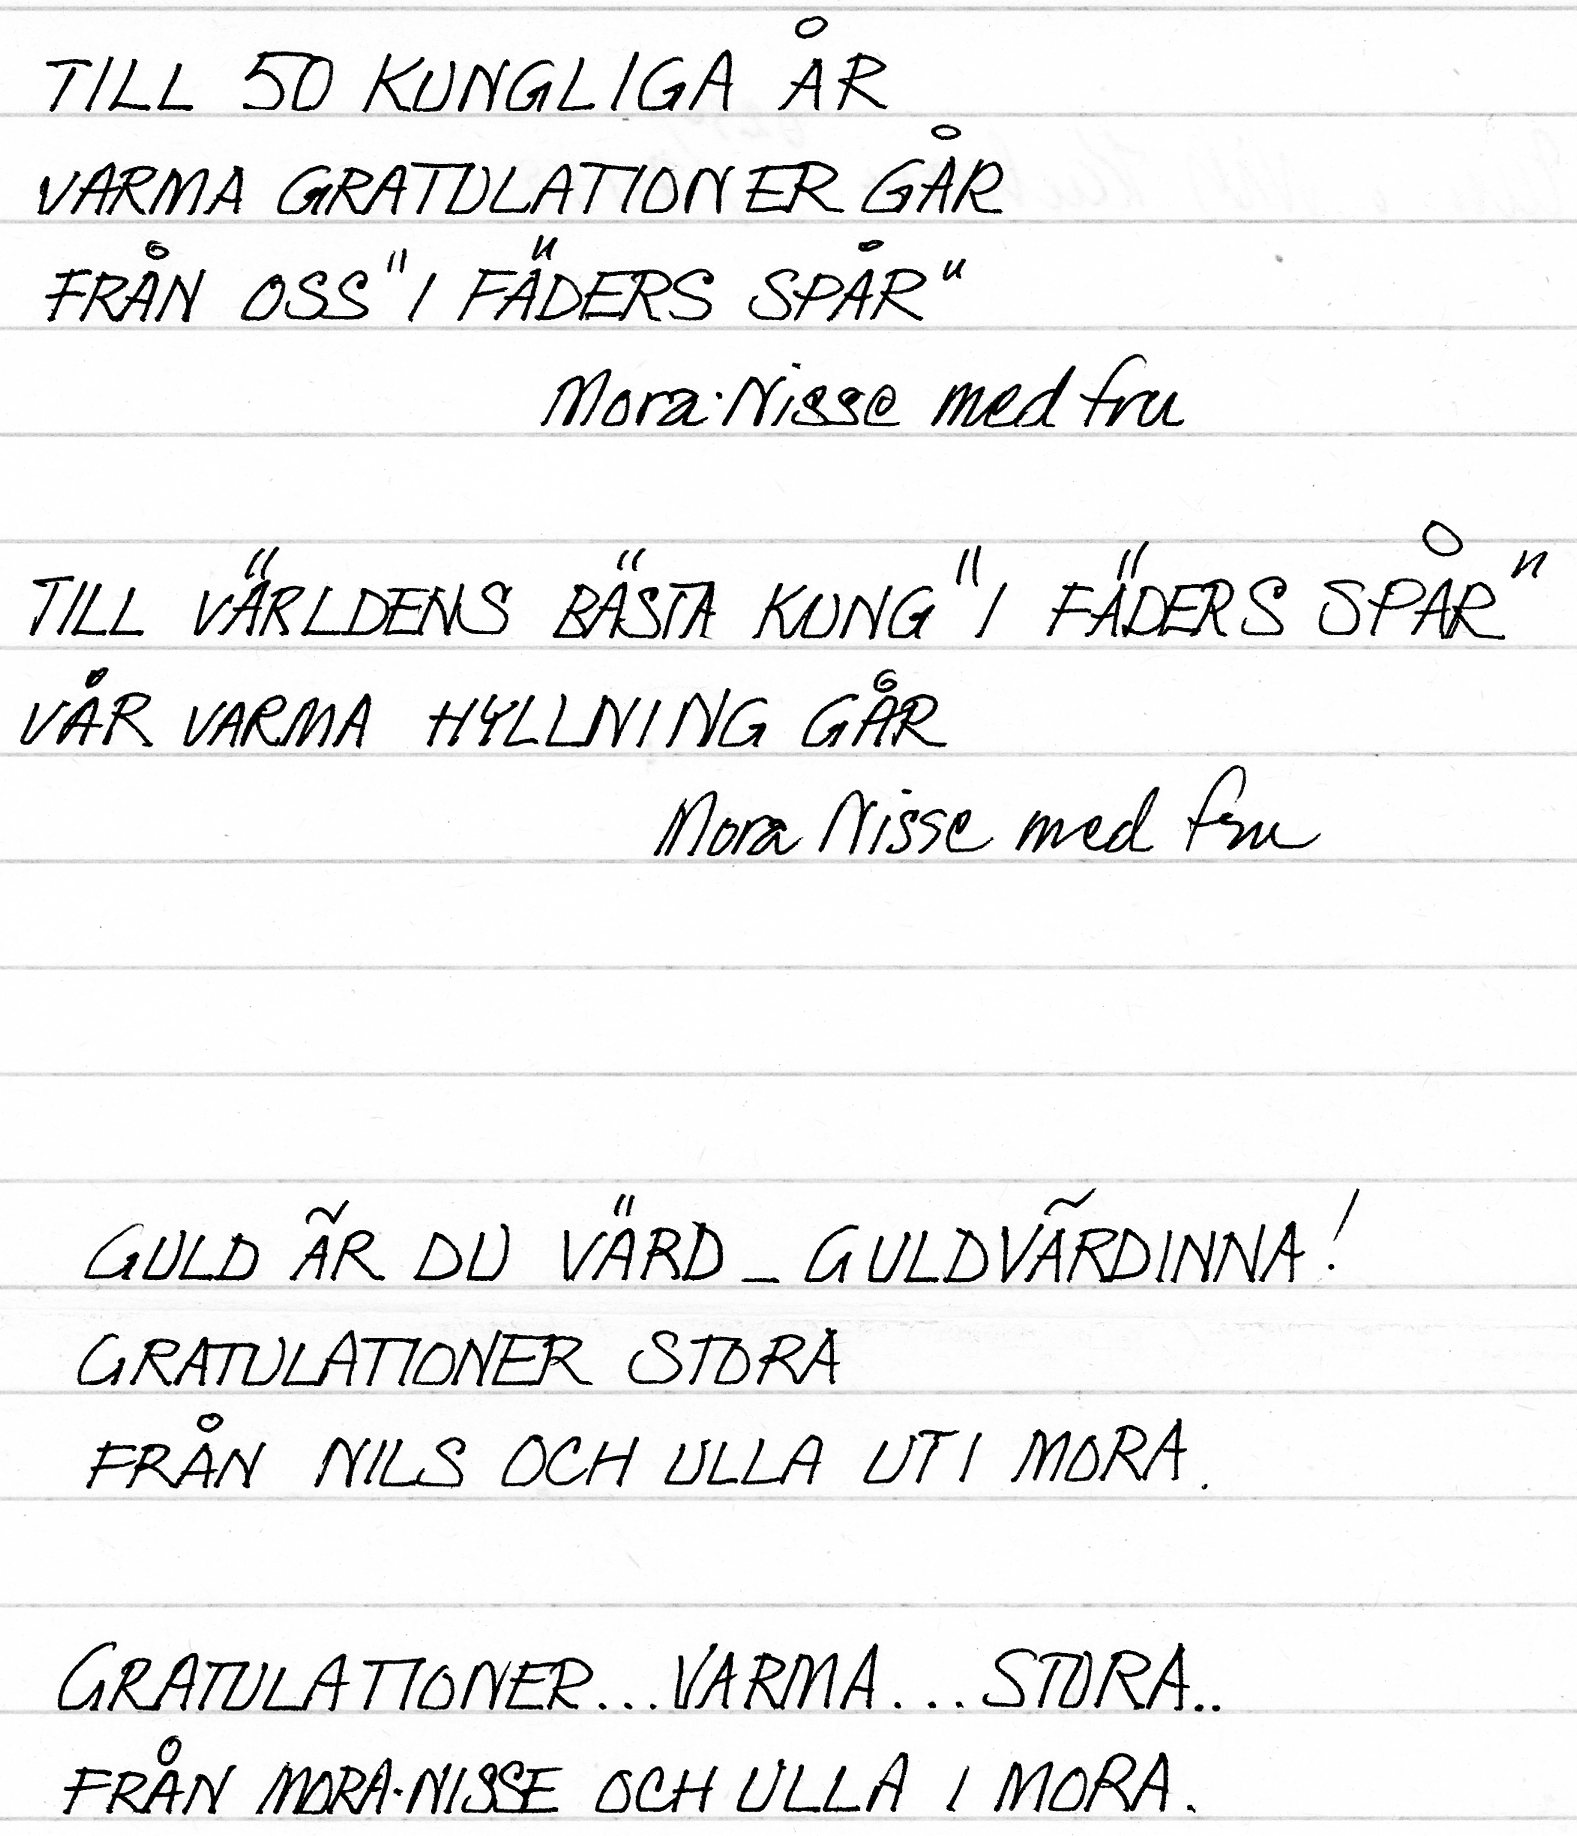 TILL 50 KUNGLIGA ÅR
VARMA GRATULATIONER GÅR
FRÅN OSS "I FÄDERS SPÅR"
Mora-Nisse med fru
TILL VÄRLDENS BÄSTA KUNG "I FÄDERS SPÅR"
VÅR VARMA HYLLNING GÅR
Mora Nisse med fru
GULD ÄR DU VÄRD _ GULDVÄRDINNA!
GRATULATIONER STORA
FRÅN NILS OCH ULLA UTI MORA.
GRATULATIONER...VARMA...STORA..
FRÅN MORA-NISSE OCH ULLA I MORA.